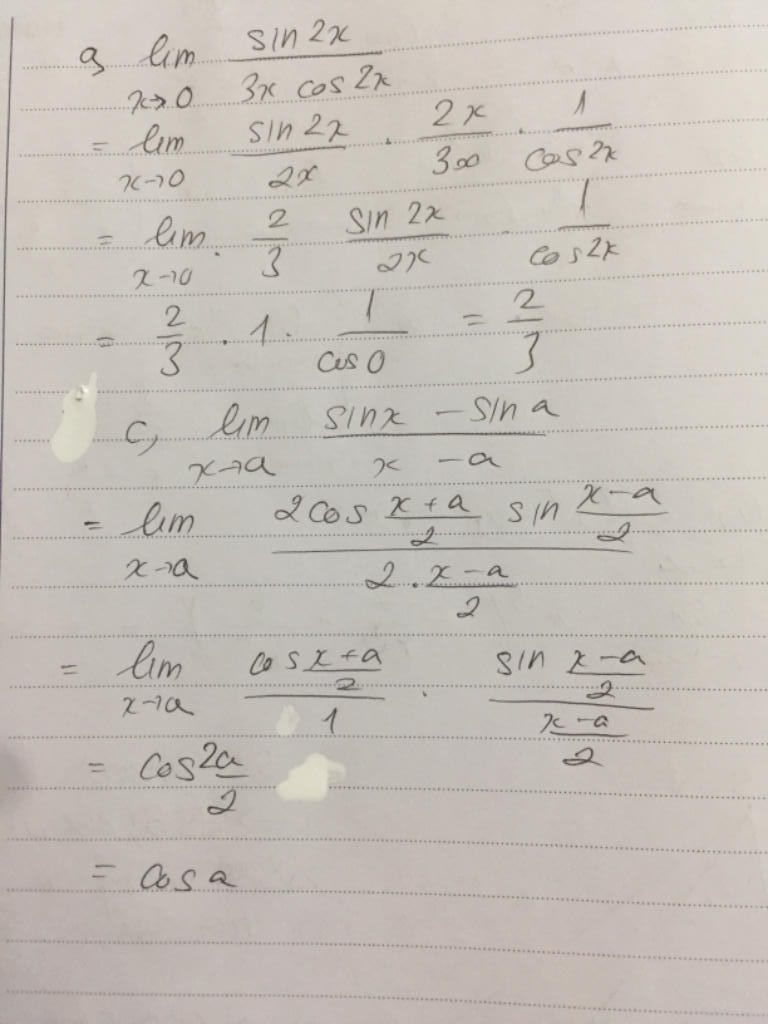 a, lim x→0 sin 2x / 3x cos 2x
= lim x→0 sin 2x / 2x . 2x / 3x . 1 / cos 2x
= lim x→0 . 2/3 sin 2x / 2x . 1 / cos 2x
= 2/3 . 1 . 1 / cos 0 = 2/3
c, lim x→a sin x - sin a / x - a
= lim x→a 2 cos x+a/2 sin x-a/2 / 2 . x-a/2
= lim x→a cos x+a/2 / 1 . sin x-a/2 / x-a/2
= cos 2a/2
= cos a